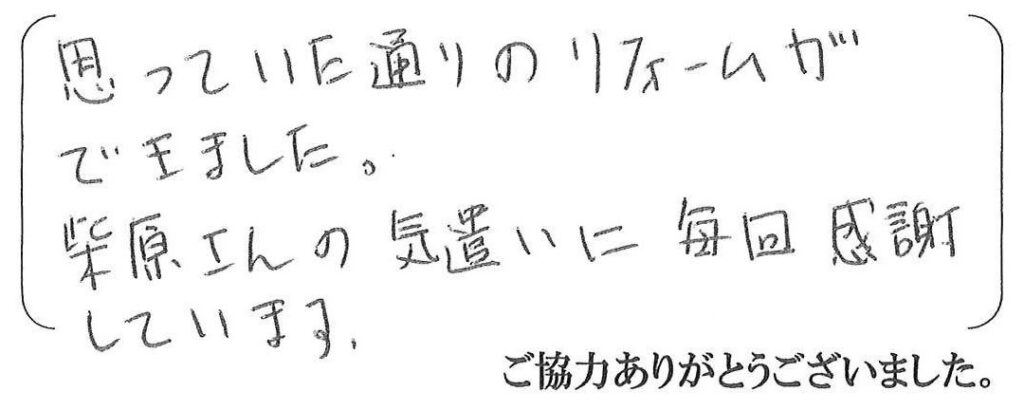 思っていた通りのリフォームが
できました。
柴原さんの気遣いに毎回感謝
しています.
ご協力ありがとうございました。